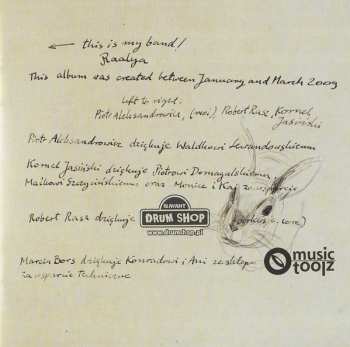 ← this is my band!
Raalya
This album was created between January and March 2009
left to right:
Piotr Aleksandrowicz, (veri), Robert Rasz, Kornel
Jasiński
Piotr Aleksandrowicz dziękuje Waldkowi Lewandowskiemu
Kornel Jasiński dziękuje Piotrowi Domagalskiemu,
Maćkowi Szczycińskiemu oraz Monice i Kaj za wsparcie
Robert Rasz dziękuje
AVANT
DRUM SHOP
www.drumshop.pl
music
toolz
Marcin Bors dziękuje Konradowi i Ani ze sklep
za wsparcie Techniczne